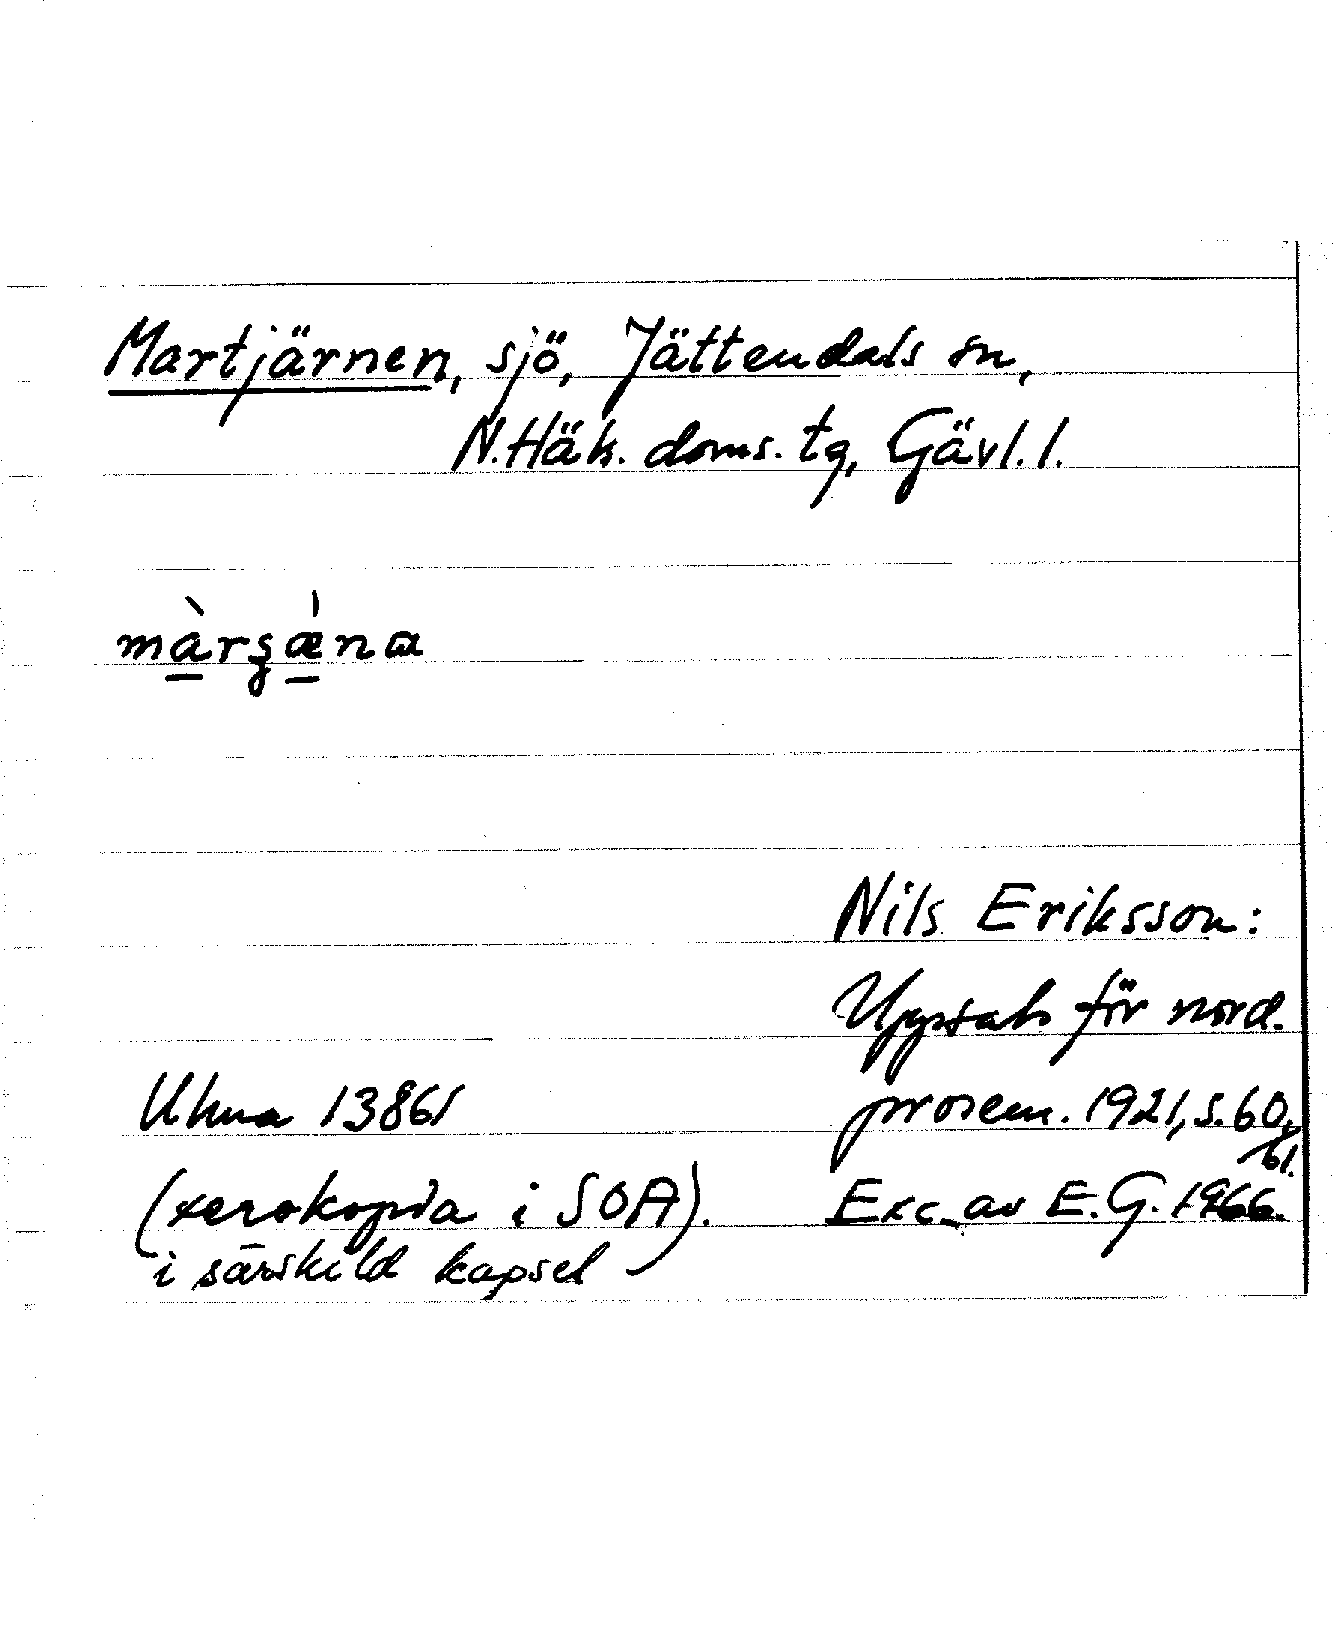 Martjärnen, sjö, Jättendals sn,
N. Häls. doms. tg, Gävl. l.
màrʂǽna
Nils Eriksson:
Uppsats för nord.
prosem. 1921, s. 60,
61.
Exc. av E. G. 1966.
Ulma 13861
(xerokopia i SOA).
i särskild kapsel